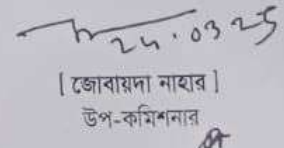 24.03.25
[ জোবায়দা নাহার ]
উপ-কমিশনার